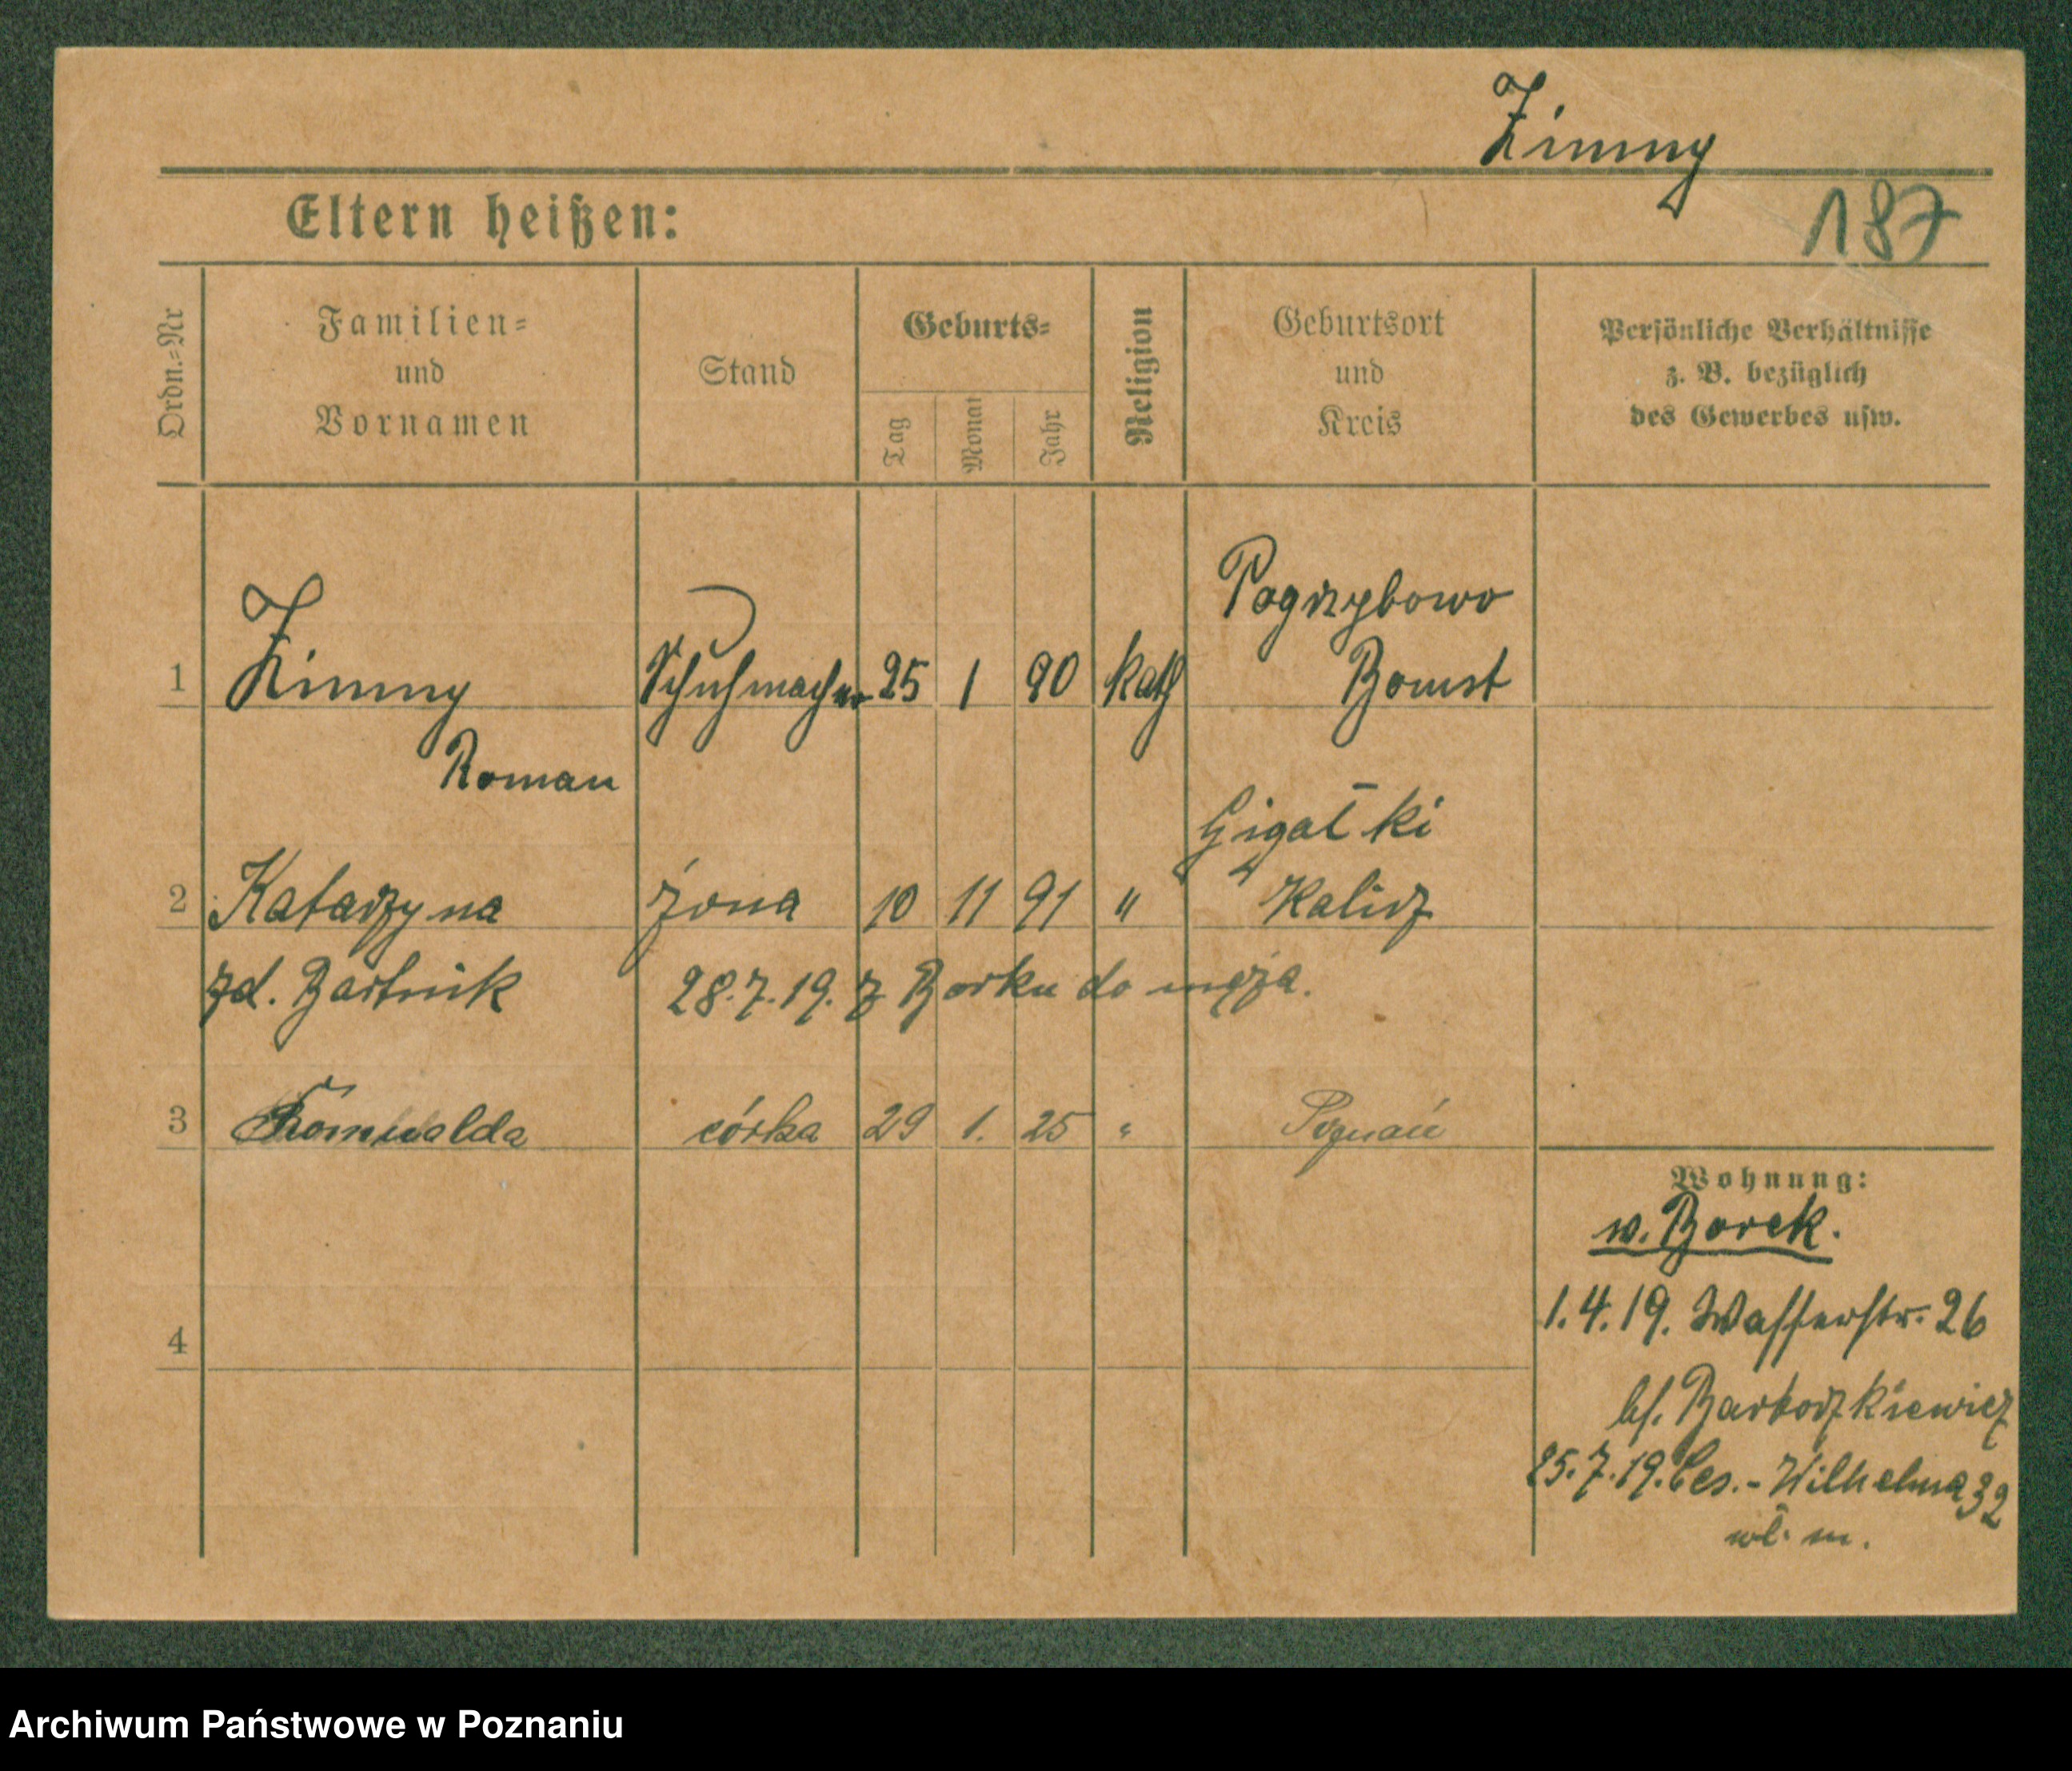 Zimny
Eltern heißen:
187
Ordn.=Nr
Familien=
und
Vornamen
Stand
Geburts=
Tag
Monat
Jahr
Religion
Geburtsort
und
Kreis
Persönliche Verhältnisse
z. B. bezüglich
des Gewerbes usw.
Pogrzybowo
1 Zimny Schuhmacher 25 1 90 kath Bomst
Roman
2 Katarzyna żona 10 11 91 " Kalisz
zd. Bartnik 28.7.19. z Borku do męża.
3 Romualda córka 29 1. 25 " Poznań
Wohnung:
w. Borek.
1.4.19. Wasserstr. 26
4
25.7.19. Ces.-Wilhelma 32
wł. m.
Archiwum Państwowe w Poznaniu